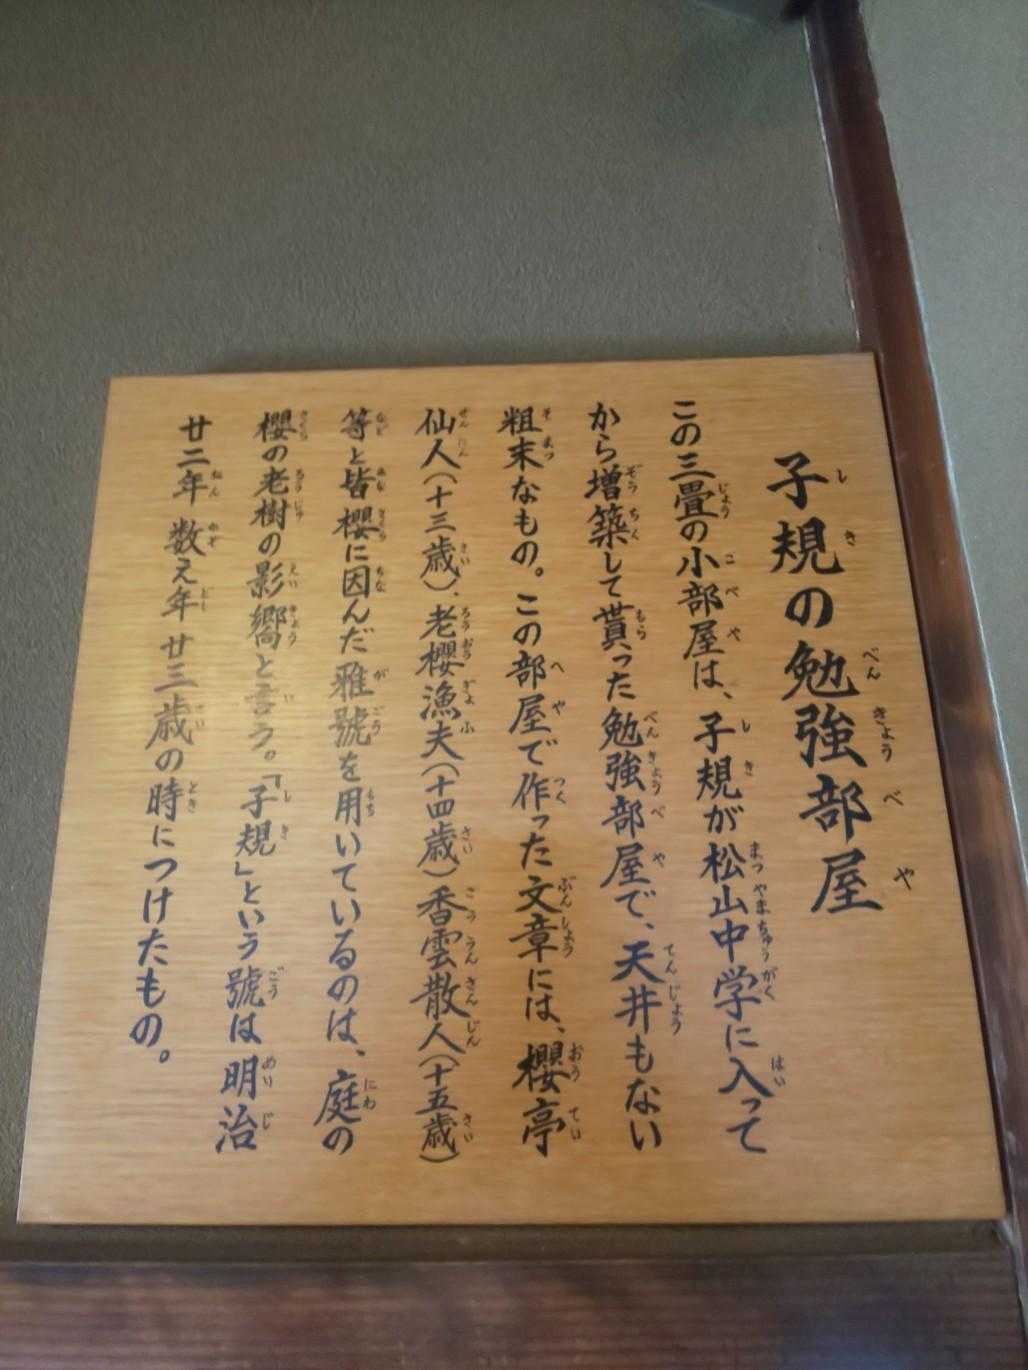 子規の勉強部屋
この三畳の小部屋は、子規が松山中学に入って
から増築して貰った勉強部屋で、天井もない
粗末なもの。この部屋で作った文章には、櫻亭
仙人(十三歳)、老櫻漁夫(十四歳)香雲散人(十五歳)
等と皆櫻に因んだ雅號を用いているのは、庭の
櫻の老樹の影響と言う。「子規」という號は明治
廿二年数え年廿三歳の時につけたもの。